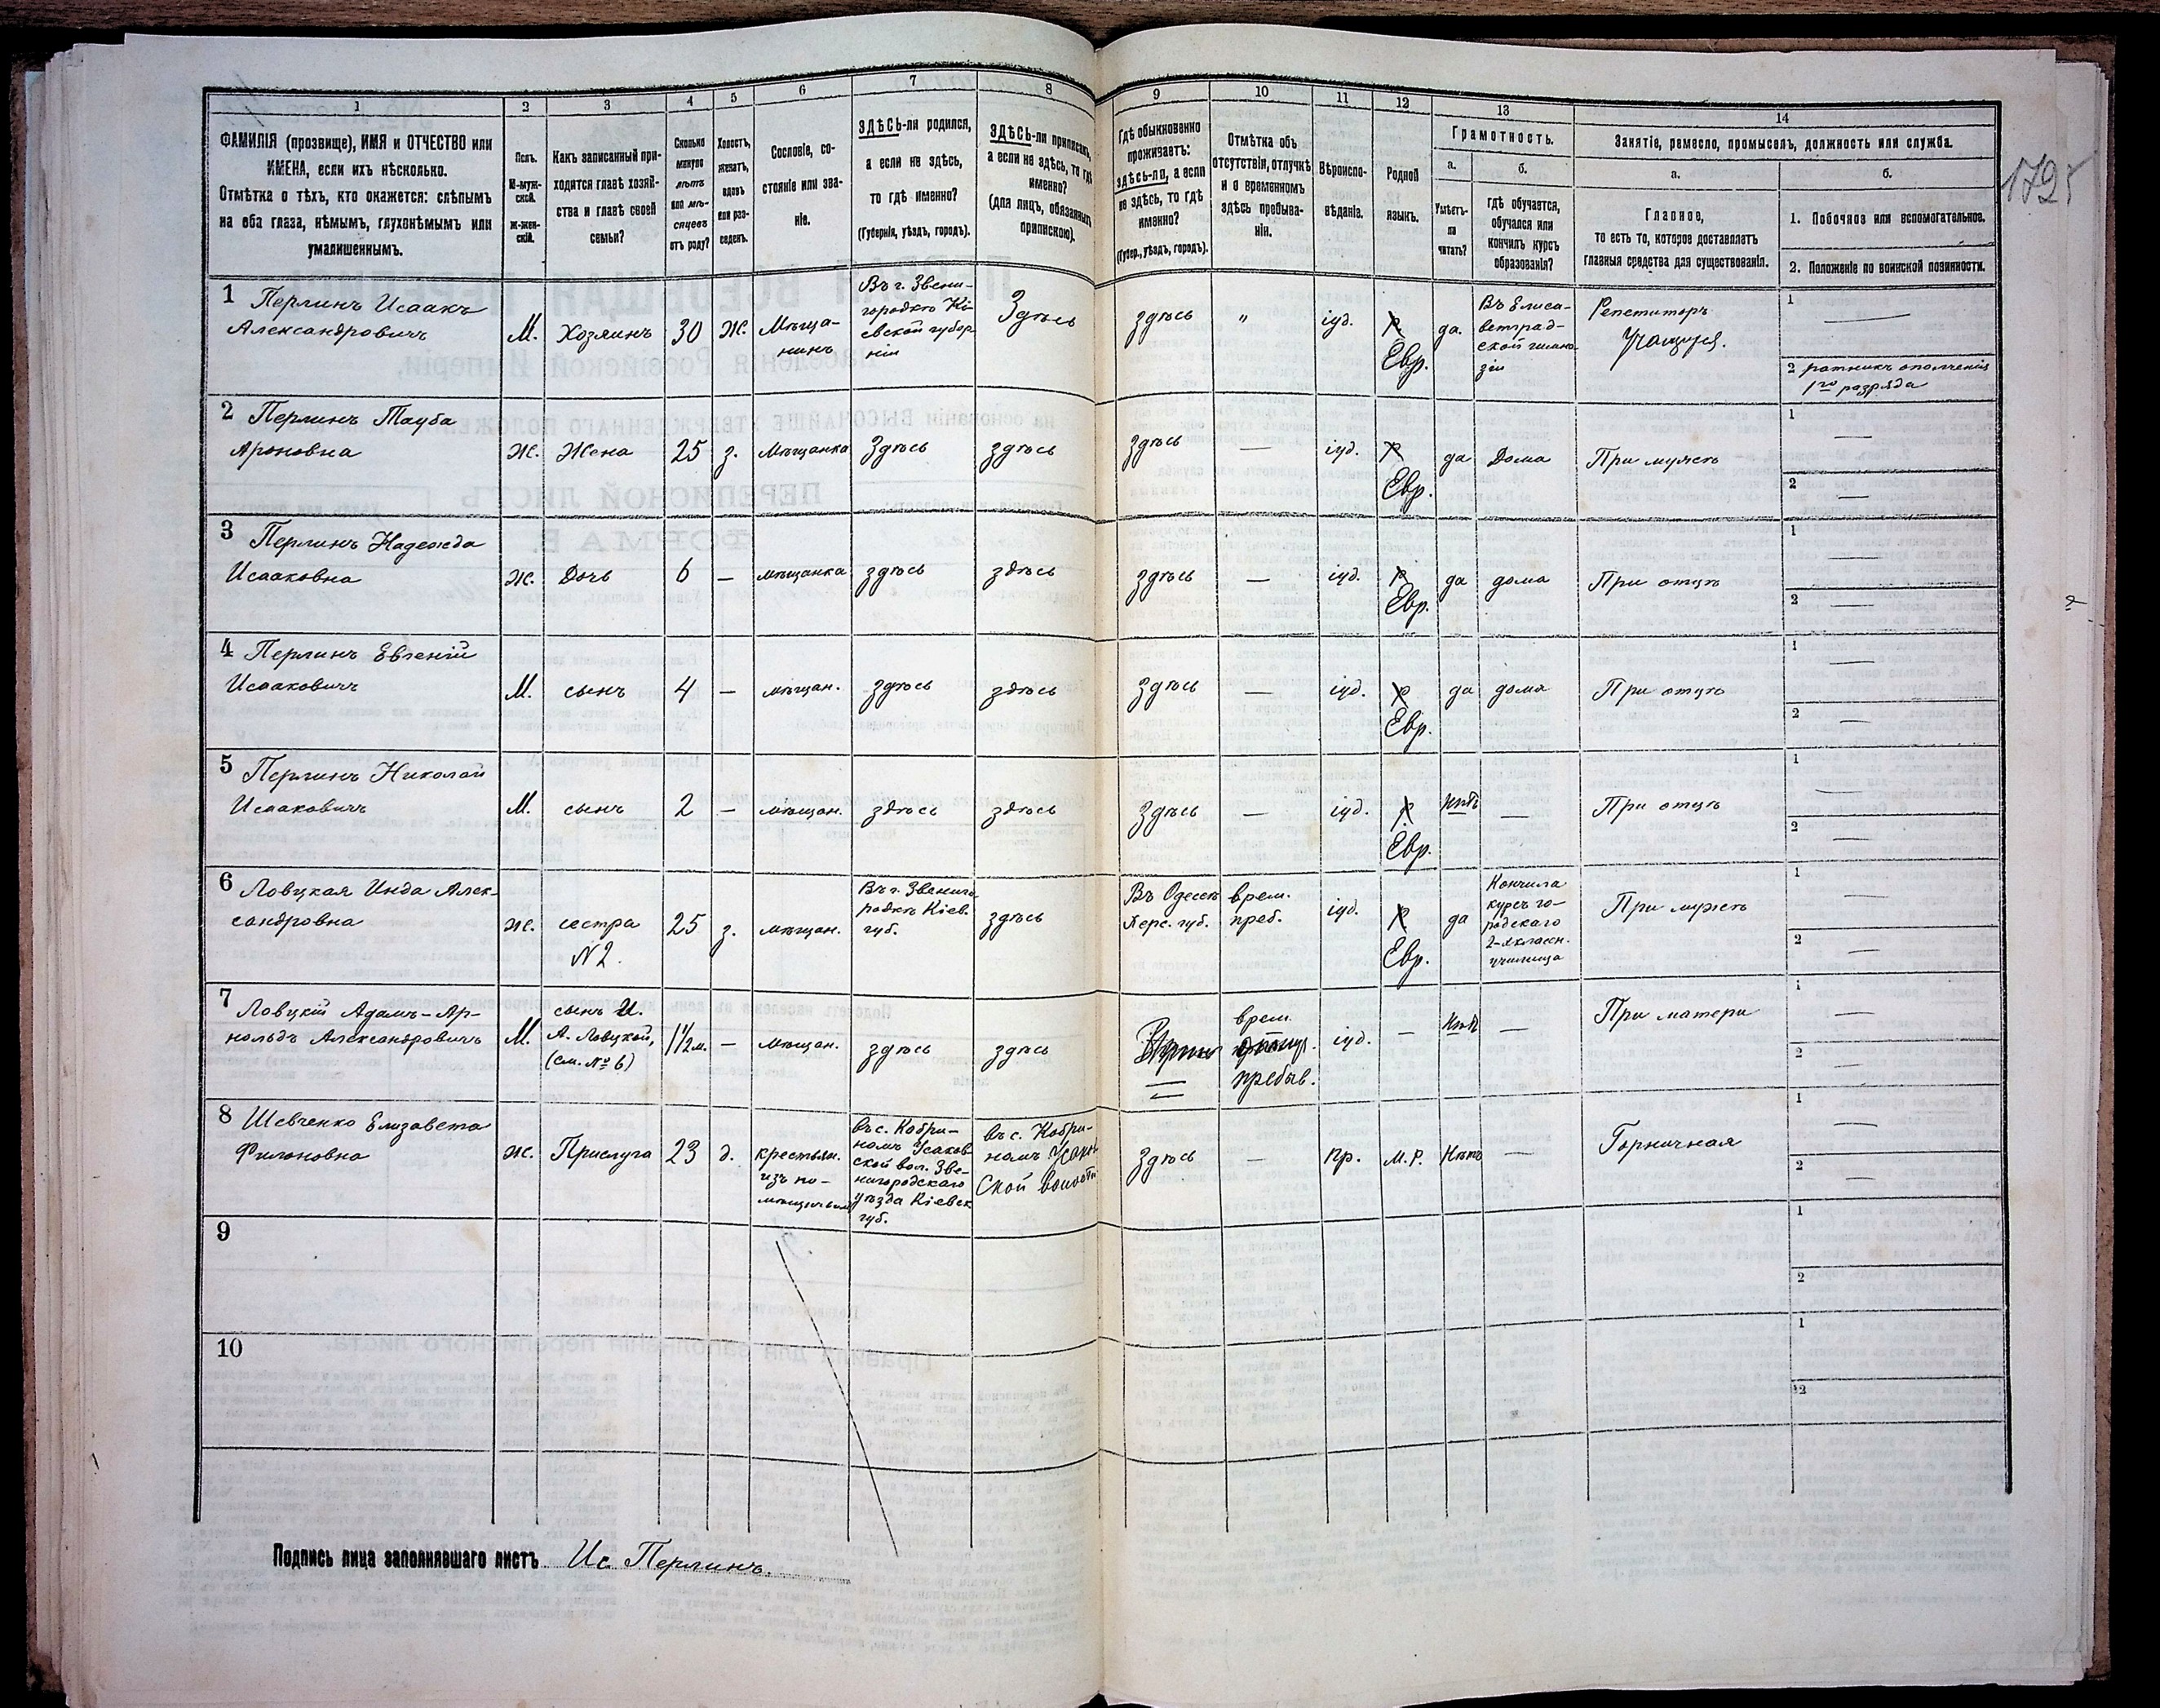 1 2 3 4 5 6 7 8 9 10 11 12 13 14
ФАМИЛІЯ (прозвище), ИМЯ и ОТЧЕСТВО или
ИМЕНА, если ихъ нѣсколько.
Отмѣтка о тѣхъ, кто окажется: слѣпымъ
на оба глаза, нѣмымъ, глухонѣмымъ или
умалишеннымъ.
Полъ.
М-муж-
ской.
ж-жен-
скій.
Какъ записанный при-
ходится главѣ хозяй-
ства и главѣ своей
семьи?
Сколько
минуло
лѣтъ
или мѣ-
сяцевъ
отъ роду?
Холостъ,
женатъ,
вдовъ
или раз-
веденъ.
Сословіе, со-
стояніе или зва-
ніе.
ЗДѢСЬ-ли родился,
а если не здѣсь,
то гдѣ именно?
(Губернія, уѣздъ, городъ).
ЗДѢСЬ-ли приписанъ,
а если не здѣсь, то гдѣ
именно?
(для лицъ, обязанныхъ
припискою).
Гдѣ обыкновенно
проживаетъ:
здѣсь-ли, а если
не здѣсь, то гдѣ
именно?
(Губер., уѣздъ, городъ).
Отмѣтка объ
отсутствіи, отлучкѣ
и о временномъ
здѣсь пребыва-
ніи.
Вѣроиспо-
вѣданіе.
Родной
языкъ.
Грамотность.
а.
Умѣетъ-
ли
читать?
б.
гдѣ обучается,
обучался или
кончилъ курсъ
образованія?
Занятіе, ремесло, промыселъ, должность или служба.
а.
Главное,
то есть то, которое доставляетъ
главныя средства для существованія.
б.
1. Побочное или вспомогательное.
2. Положеніе по воинской повинности.
1 Перлинъ Исаакъ
Александровичъ
М.
Хозяинъ
30
Ж.
Мѣща-
нинъ
Въ г. Звени-
городкѣ Кі-
евской губер-
ніи
Здѣсь
здѣсь
"
іуд.
Евр.
да.
Въ Елиса-
ветград-
ской гимна-
зіи
Репетиторъ
Учащійся.
1 —
2 ратникъ ополченія
1го разряда
2 Перлинъ Тауба
Ароновна
Ж.
Жена
25
з.
Мѣщанка
Здѣсь
здѣсь
здѣсь
—
іуд.
Евр.
да
Дома
При мужѣ
1 —
2 —
3 Перлинъ Надежда
Исааковна
Ж.
Дочь
6
—
мѣщанка
здѣсь
здѣсь
здѣсь
—
іуд.
Евр.
да
дома
При отцѣ
1 —
2 —
4 Перлинъ Евгеній
Исааковичъ
М.
сынъ
4
—
мѣщан.
здѣсь
здѣсь
здѣсь
—
іуд.
Евр.
да
дома
При отцѣ
1 —
2 —
5 Перлинъ Николай
Исааковичъ
М.
сынъ
2
—
мѣщан.
здѣсь
здѣсь
здѣсь
—
іуд.
Евр.
нѣтъ
—
При отцѣ
1 —
2 —
6 Ловцкая Инда Алек-
сандровна
Ж.
сестра
N 2.
25
з.
мѣщан.
Въ г. Звениго
родкѣ Кіев.
губ.
здѣсь
Въ Одессѣ
Херс. губ.
врем.
преб.
іуд.
Евр.
да
Кончила
курсъ го-
родскаго
2-хклассн.
училища
При мужѣ
1 —
2 —
7 Ловцкій Адамъ-Ар-
нольдъ Александровичъ
М.
сынъ И.
А. Ловцкой,
(см. № 6)
1½ м.
—
мѣщан.
здѣсь
здѣсь
врем.
пребыв.
іуд.
—
нѣтъ
—
При матери
1 —
2 —
8 Шевченко Елизавета
Филоновна
Ж.
Прислуга
23
д.
крестьян.
изъ по-
Въ с. Кобри-
номъ Усаков
ской вол. Зве-
нигородскаго
уѣзда Кіевск
губ.
въ с. Кобри-
номъ Усаков
ской волости
здѣсь
—
пр.
М.Р.
Нѣтъ
—
Горничная
1 —
2 —
9
1
2
10
1
2
Подпись лица заполнявшаго листъ Ис Перлинъ.